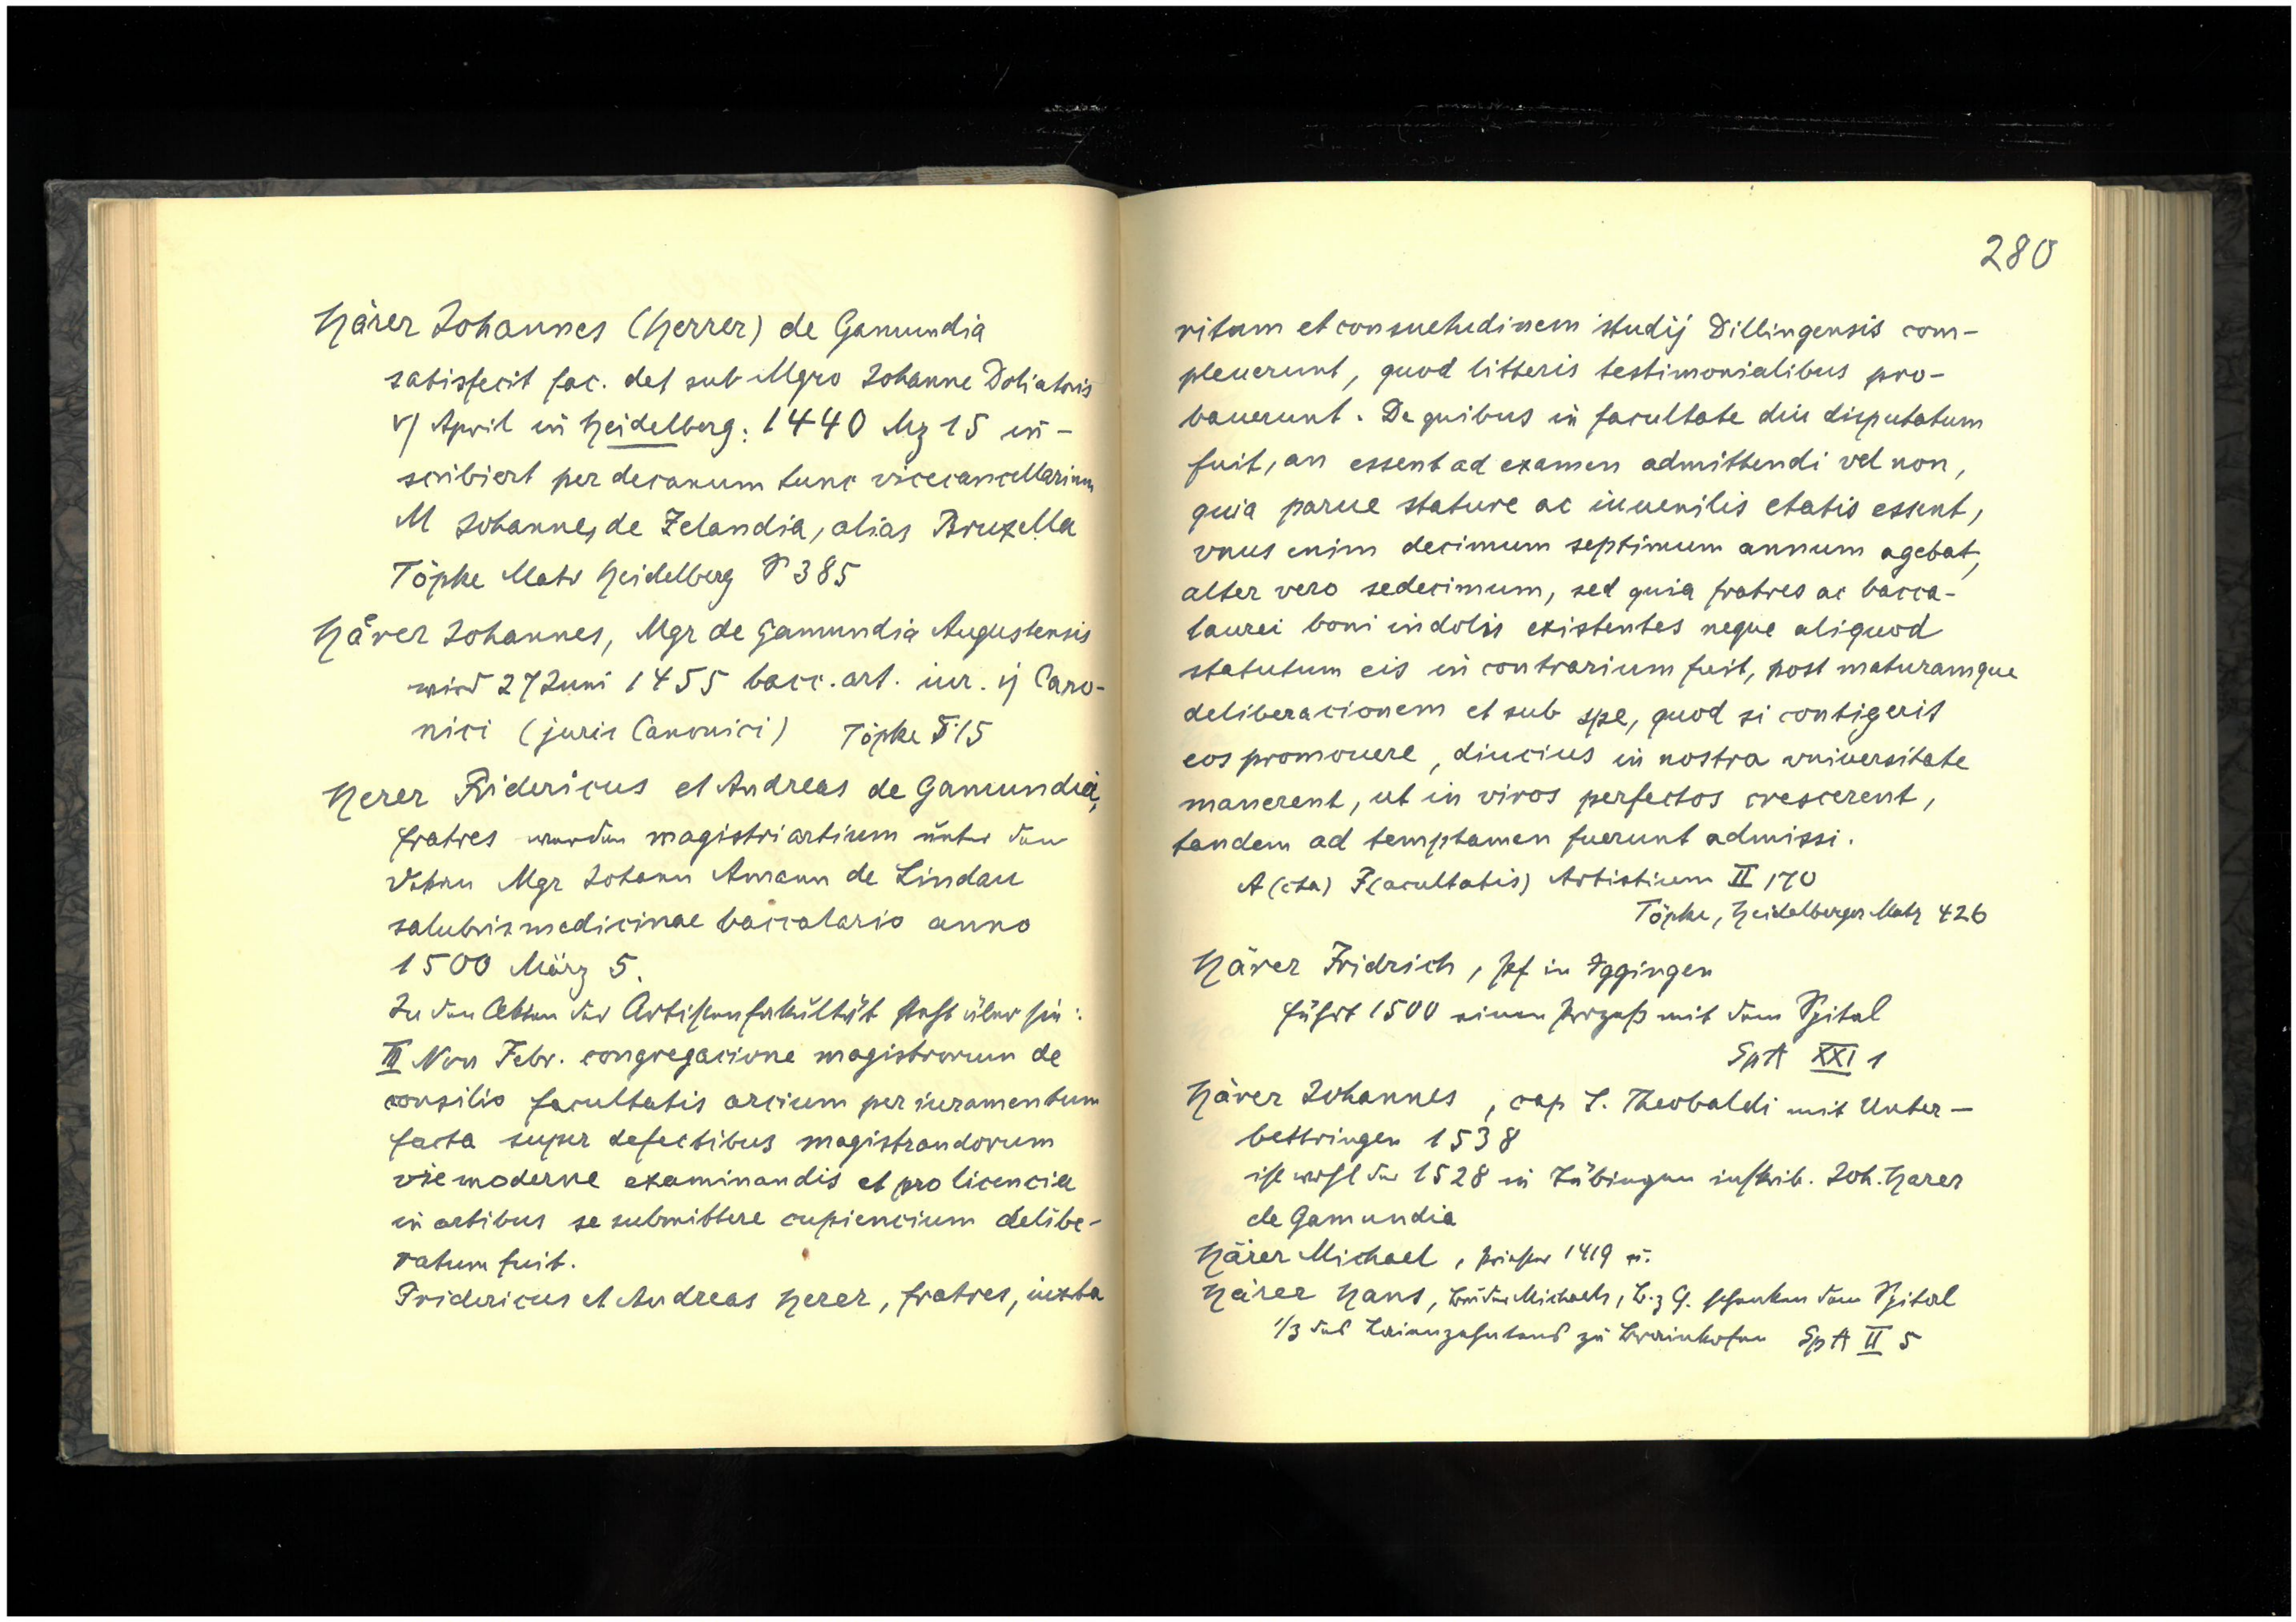 Härer Johannes (Herrer) de Gamundia
satisfecit fac. det sub Mgro Johanne Doliatoris
V/ April in Heidelberg: 1440 Mz 15 in-
scribiert per decanum tunc vicecancellarium
M Johannes de Zelandia, alias Bruxella
Töpke Matr Heidelberg I 385
Härer Johannes, Mgr de Gamundia Augustensis
wird 27 Juni 1455 bacc. art. iur. ij Cano-
nici (juris Canonici) Töpke II 15
Herer Fridericus et Andreas de Gamundia,
fratres wurden magistri artium unter dem
Dekan Mgr Johann Amann de Lindau
salubris medicinae baccalario anno
1500 März 5.
In den Akten der Artistenfakultät steht über sie:
III Non Febr. congregacione magistrorum de
consilio facultatis arcium per iuramentum
facta super defectibus magistrandorum
vie moderne examinandis et pro licencia
in artibus se submittere cupiencium delibe-
ratum fuit.
Fridericus et Andreas Herer, fratres, iuxta
280
ritum et consuetudinem studij Dillingensis com-
pleuerunt, quod litteris testimonialibus pro-
bauerunt. De quibus in facultate diu disputatum
fuit, an essent ad examen admittendi vel non,
quia parue stature ac iuuenilis etatis essent,
vnus enim decimum septimum annum agebat,
alter vero sedecimum, sed quia fratres ac bacca-
laurei boni indolis existentes neque aliquod
statutum eis in contrarium fuit, post maturamque
deliberacionem et sub spe, quod si contigerit
eos promouere, diucius in nostra vniuersitate
manerent, ut in viros perfectos crescerent,
tandem ad temptamen fuerunt admissi.
A(cta) F(acultatis) Artistium II 170
Töpke, Heidelberger Matr 426
Härer Fridrich, Pf in Iggingen
führt 1500 einen Prozeß mit dem Spital
SpA XXI 1
Härer Johannes, cap S. Theobaldi mit Unter-
bettringen 1538
ist wohl der 1528 in Tübingen inskrib. Joh. Harer
de Gamundia
Härer Michael, Priester 1419 u.
Härer Hans, Bruder Michaels, B. z G. schenken dem Spital
1/3 des Laienzehntens zu Brainkofen SpA II 5